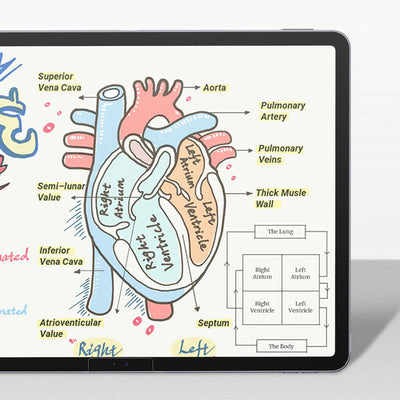 Superior
Vena Cava
Aorta
Pulmonary
Artery
Pulmonary
Veins
Semi-lunar
Value
Thick Musle
Wall
Right
Atrium
Left
Atrium
Left
Ventricle
Right
Ventricle
Inferior
Vena Cava
Atrioventicular
Value
Septum
Right
Left
The Lung
Right
Atrium
Left
Atrium
Right
Ventricle
Left
Ventricle
The Body